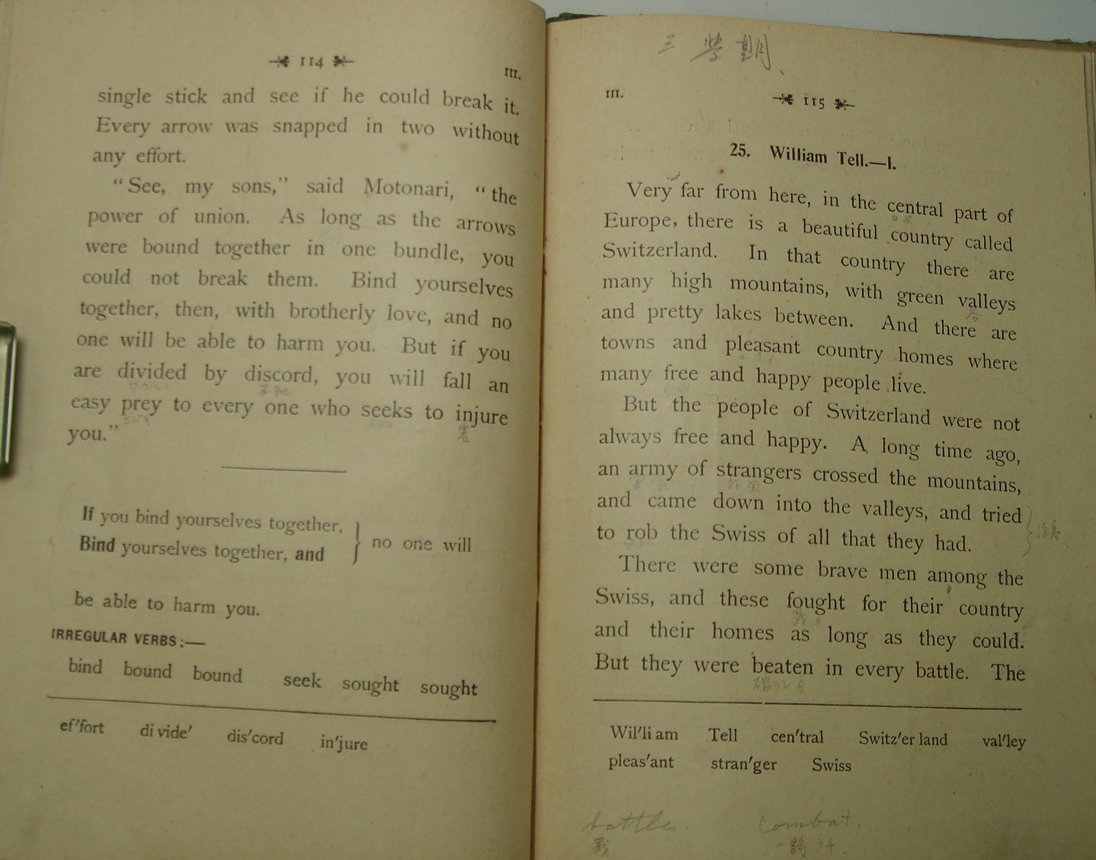 114
III.
single stick and see if he could break it.
Every arrow was snapped in two without
any effort.
“See, my sons,” said Motonari, “the
power of union. As long as the arrows
were bound together in one bundle, you
could not break them. Bind yourselves
together, then, with brotherly love, and no
one will be able to harm you. But if you
are divided by discord, you will fall an
easy prey to every one who seeks to injure
you.”
If you bind yourselves together,
Bind yourselves together, and
} no one will
be able to harm you.
IRREGULAR VERBS:—
bind bound bound seek sought sought
ef′fort di vide′ dis′cord in′jure
三学期、
III.
115
25. William Tell.—I.
Very far from here, in the central part of
Europe, there is a beautiful country called
Switzerland. In that country there are
many high mountains, with green valleys
and pretty lakes between. And there are
towns and pleasant country homes where
many free and happy people live.
But the people of Switzerland were not
always free and happy. A long time ago,
an army of strangers crossed the mountains,
and came down into the valleys, and tried
to rob the Swiss of all that they had.
There were some brave men among the
Swiss, and these fought for their country
and their homes as long as they could.
But they were beaten in every battle. The
Wil′li am Tell cen′tral Switz′er land val′ley
pleas′ant stran′ger Swiss
battle. combat.